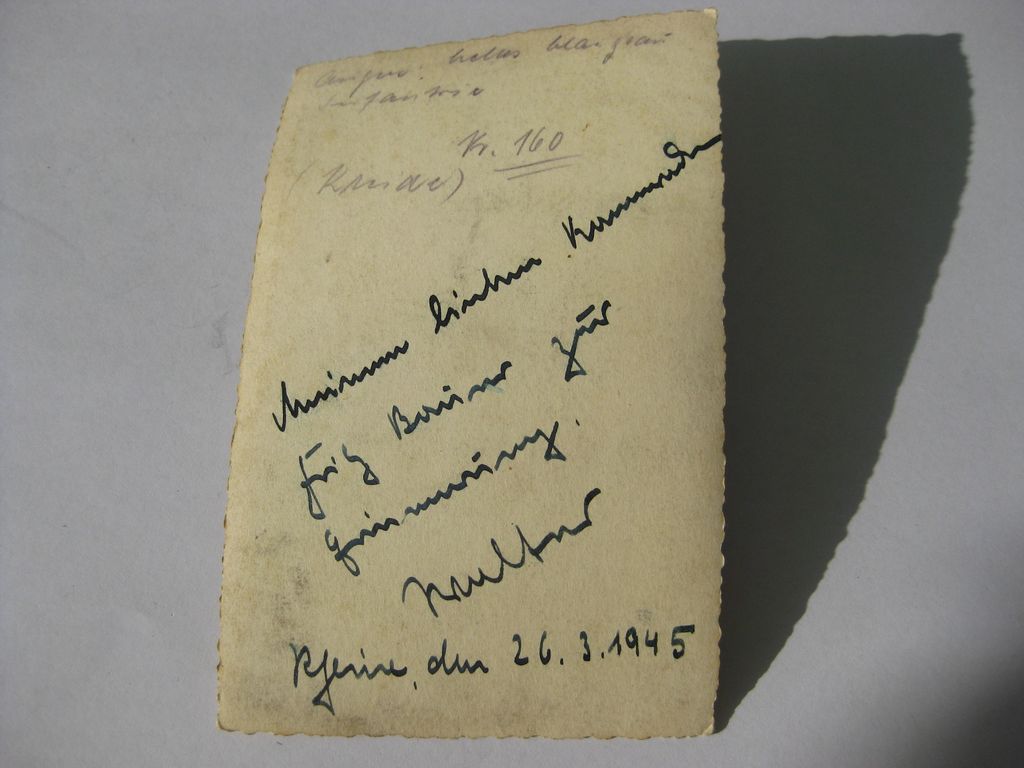 Augen: helles blaugrau
Infanterie
Nr. 160
(Kreide)
Meinem lieben Kameraden
Fritz Bauer zur
Erinnerung.
Walter
den 26. 3. 1945